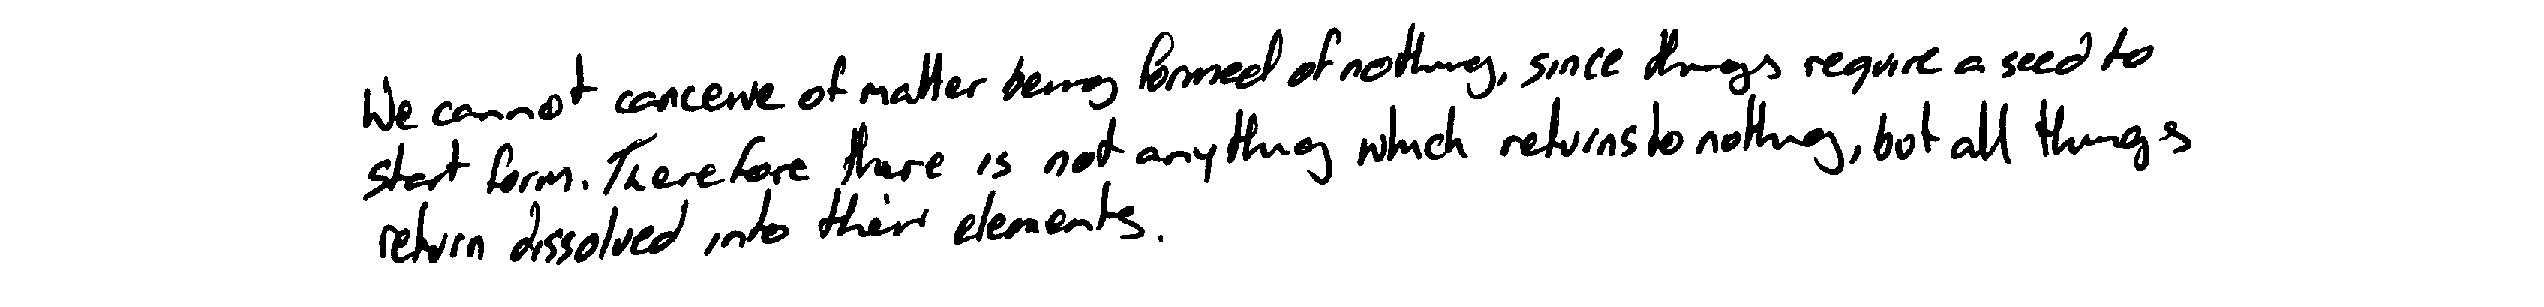 We cannot conceive of matter being formed of nothing, since things require a seed to
start form. Therefore there is not anything which returns to nothing, but all things
return dissolved into their elements.